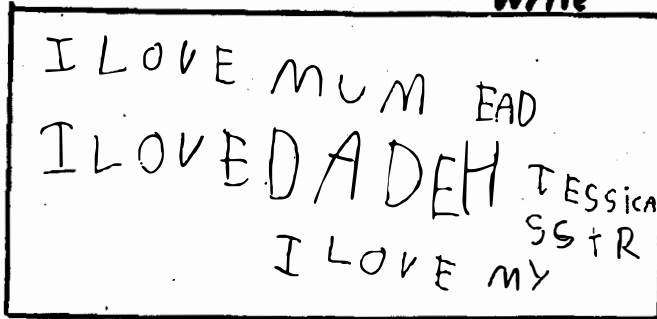 Write
I LOVE MUM EAD
I LOVE DADEH TESSICA
SStR
I LOVE MY